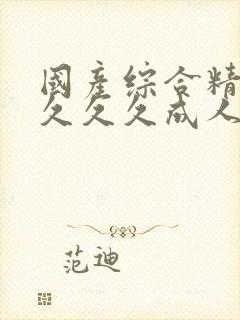 國產綜合精
久久久成人
范迪